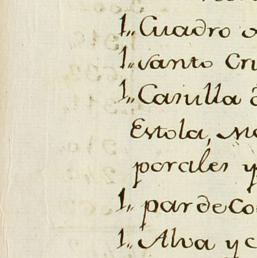 1,, Cuadro
1,, Santo
1,, Casulla
Estola,
porciles y
1,, par de
1,, Alva y